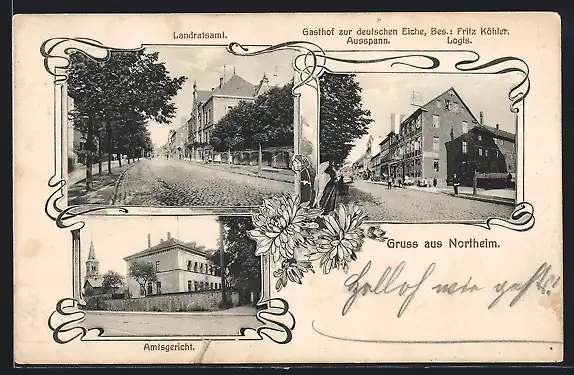 Landratsamt.
Gasthof zur deutschen Eiche, Bes.: Fritz Köhler.
Ausspann. Logis.
Gruss aus Northeim.
Holloh wie geht's!
Amtsgericht.